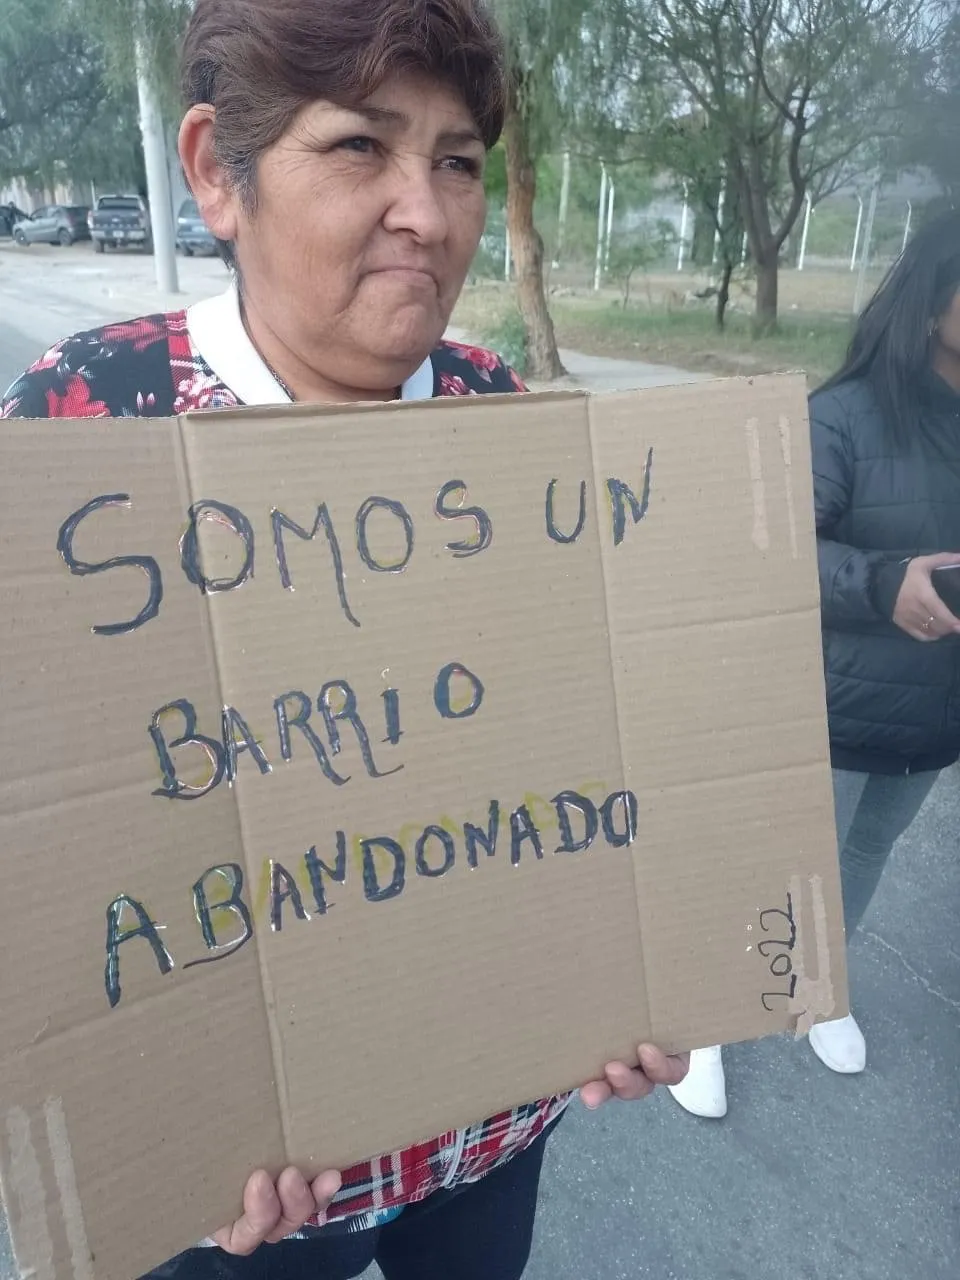 SOMOS UN
BARRIO
ABANDONADO
2022